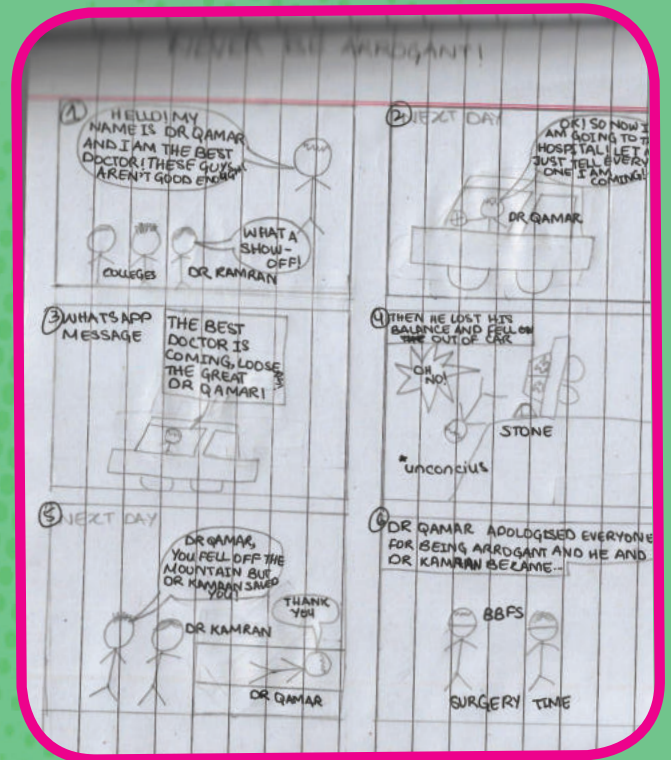 NEVER BE ARROGANT!
①
HELLO! MY
NAME IS DR QAMAR
AND I AM THE BEST
DOCTOR! THESE GUYS
AREN'T GOOD ENOUGH!
WHAT A
SHOW-
OFF!
COLLEGES
DR KAMRAN
②NEXT DAY
OK! SO NOW I
AM GOING TO
HOSPITAL! LET
JUST TELL EVERY
ONE I AM
COMING!
DR QAMAR
③WHATSAPP
MESSAGE
THE BEST
DOCTOR IS
COMING, LOOSERS,
THE GREAT
DR QAMAR!
④THEN HE LOST HIS
BALANCE AND FELL
OUT OF CAR
OH
NO!
STONE
*unconcius
⑤NEXT DAY
DR QAMAR,
YOU FELL OFF THE
MOUNTAIN BUT
DR KAMRAN SAVED
YOU!
THANK
YOU
DR KAMRAN
DR QAMAR
⑥DR QAMAR APOLOGISED EVERYONE
FOR BEING ARROGANT AND HE AND
DR KAMRAN BECAME...
BBFS
SURGERY TIME